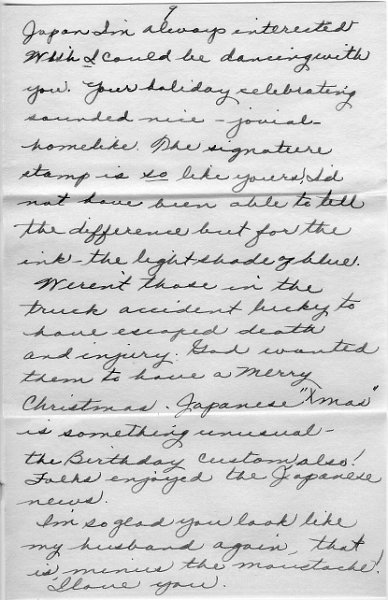 9
Japan I'm always interested
Wish I could be dancing with
you. Your holiday celebrating
sounded nice - jovial -
homelike. The signature
stamp is so like yours, I'd
not have been able to tell
the difference but for the
ink - the light shade of blue.
Weren't those in the
truck accident lucky to
have escaped death
and injury. God wanted
them to have a Merry
Christmas. Japanese "Xmas"
is something unusual -
the Birthday custom also!
Folks enjoyed the Japanese
news.
I'm so glad you look like
my husband again, that
is, minus the moustache!
I love you.